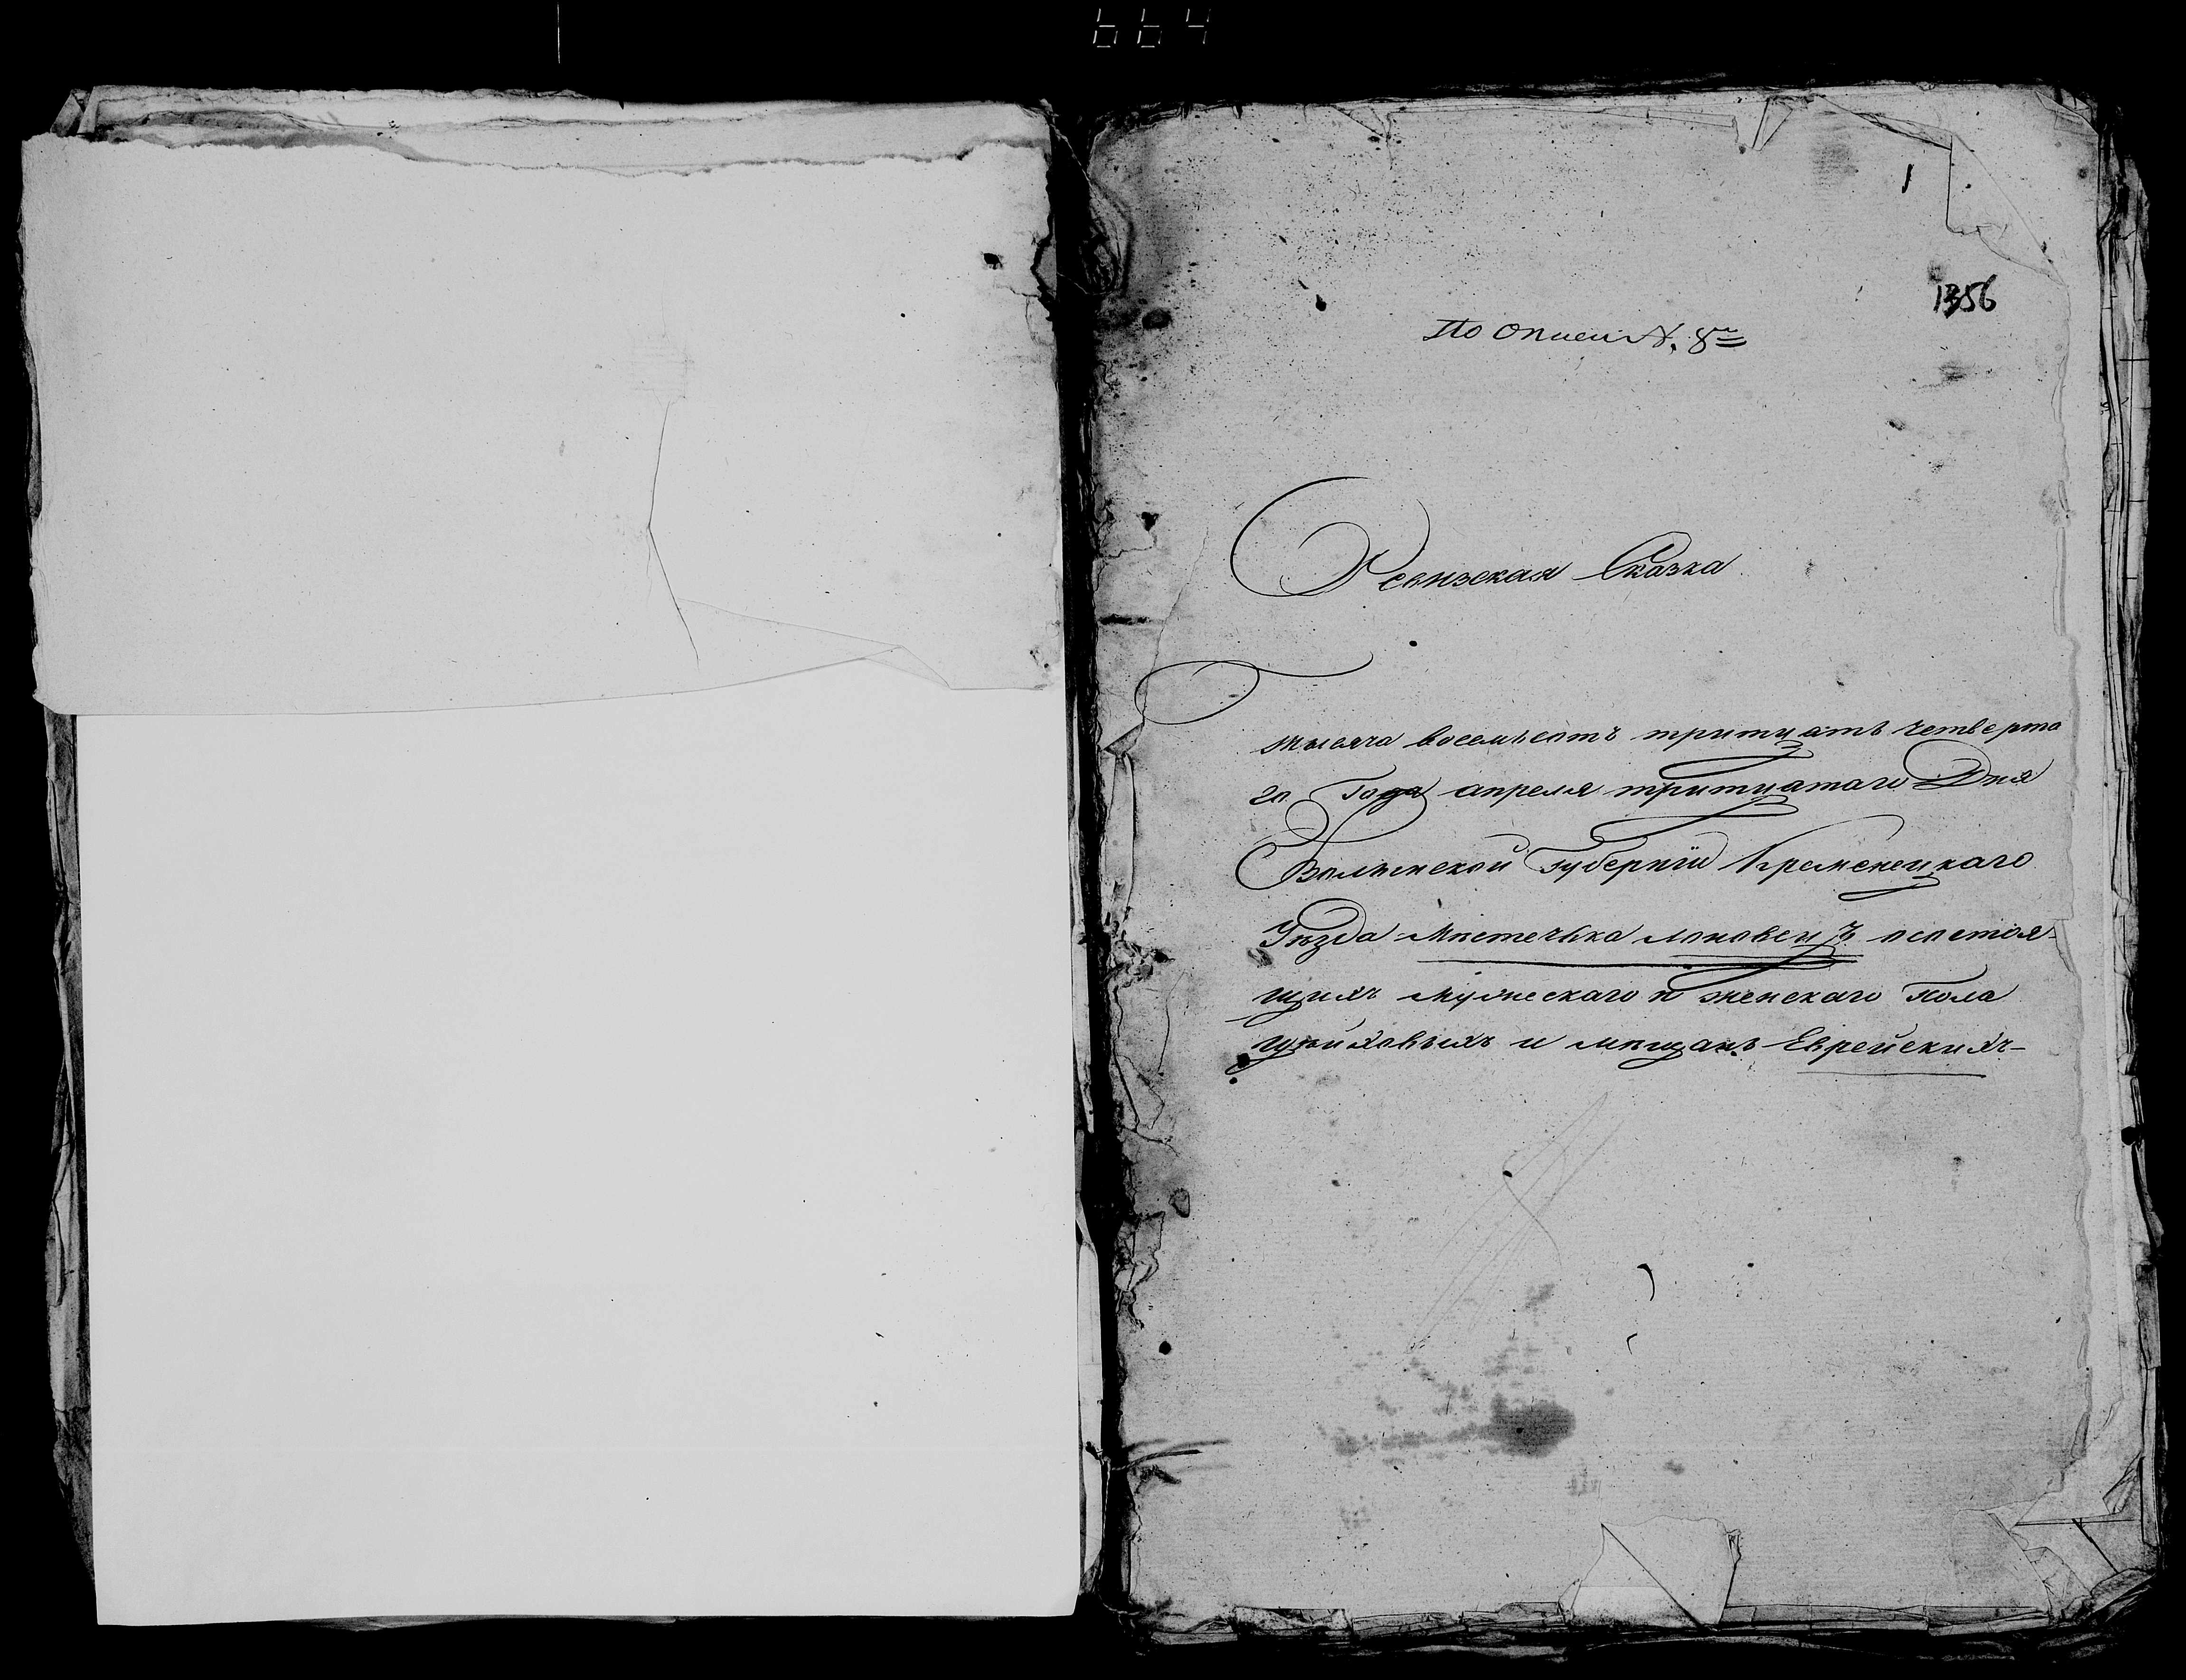 664
1
1356
По описи №. 8й
Ревизская Сказка
Тысяча восемьсотъ тритцать четверта
го Года апреля тритцатаго Дня
Волынской Губернiи Кременецкаго
Уѣзда Мѣстечька Лановецъ о состоя-
щихъ мужескаго и женскаго Пола
цеховыхъ и мѣщанъ Еврейскихъ-